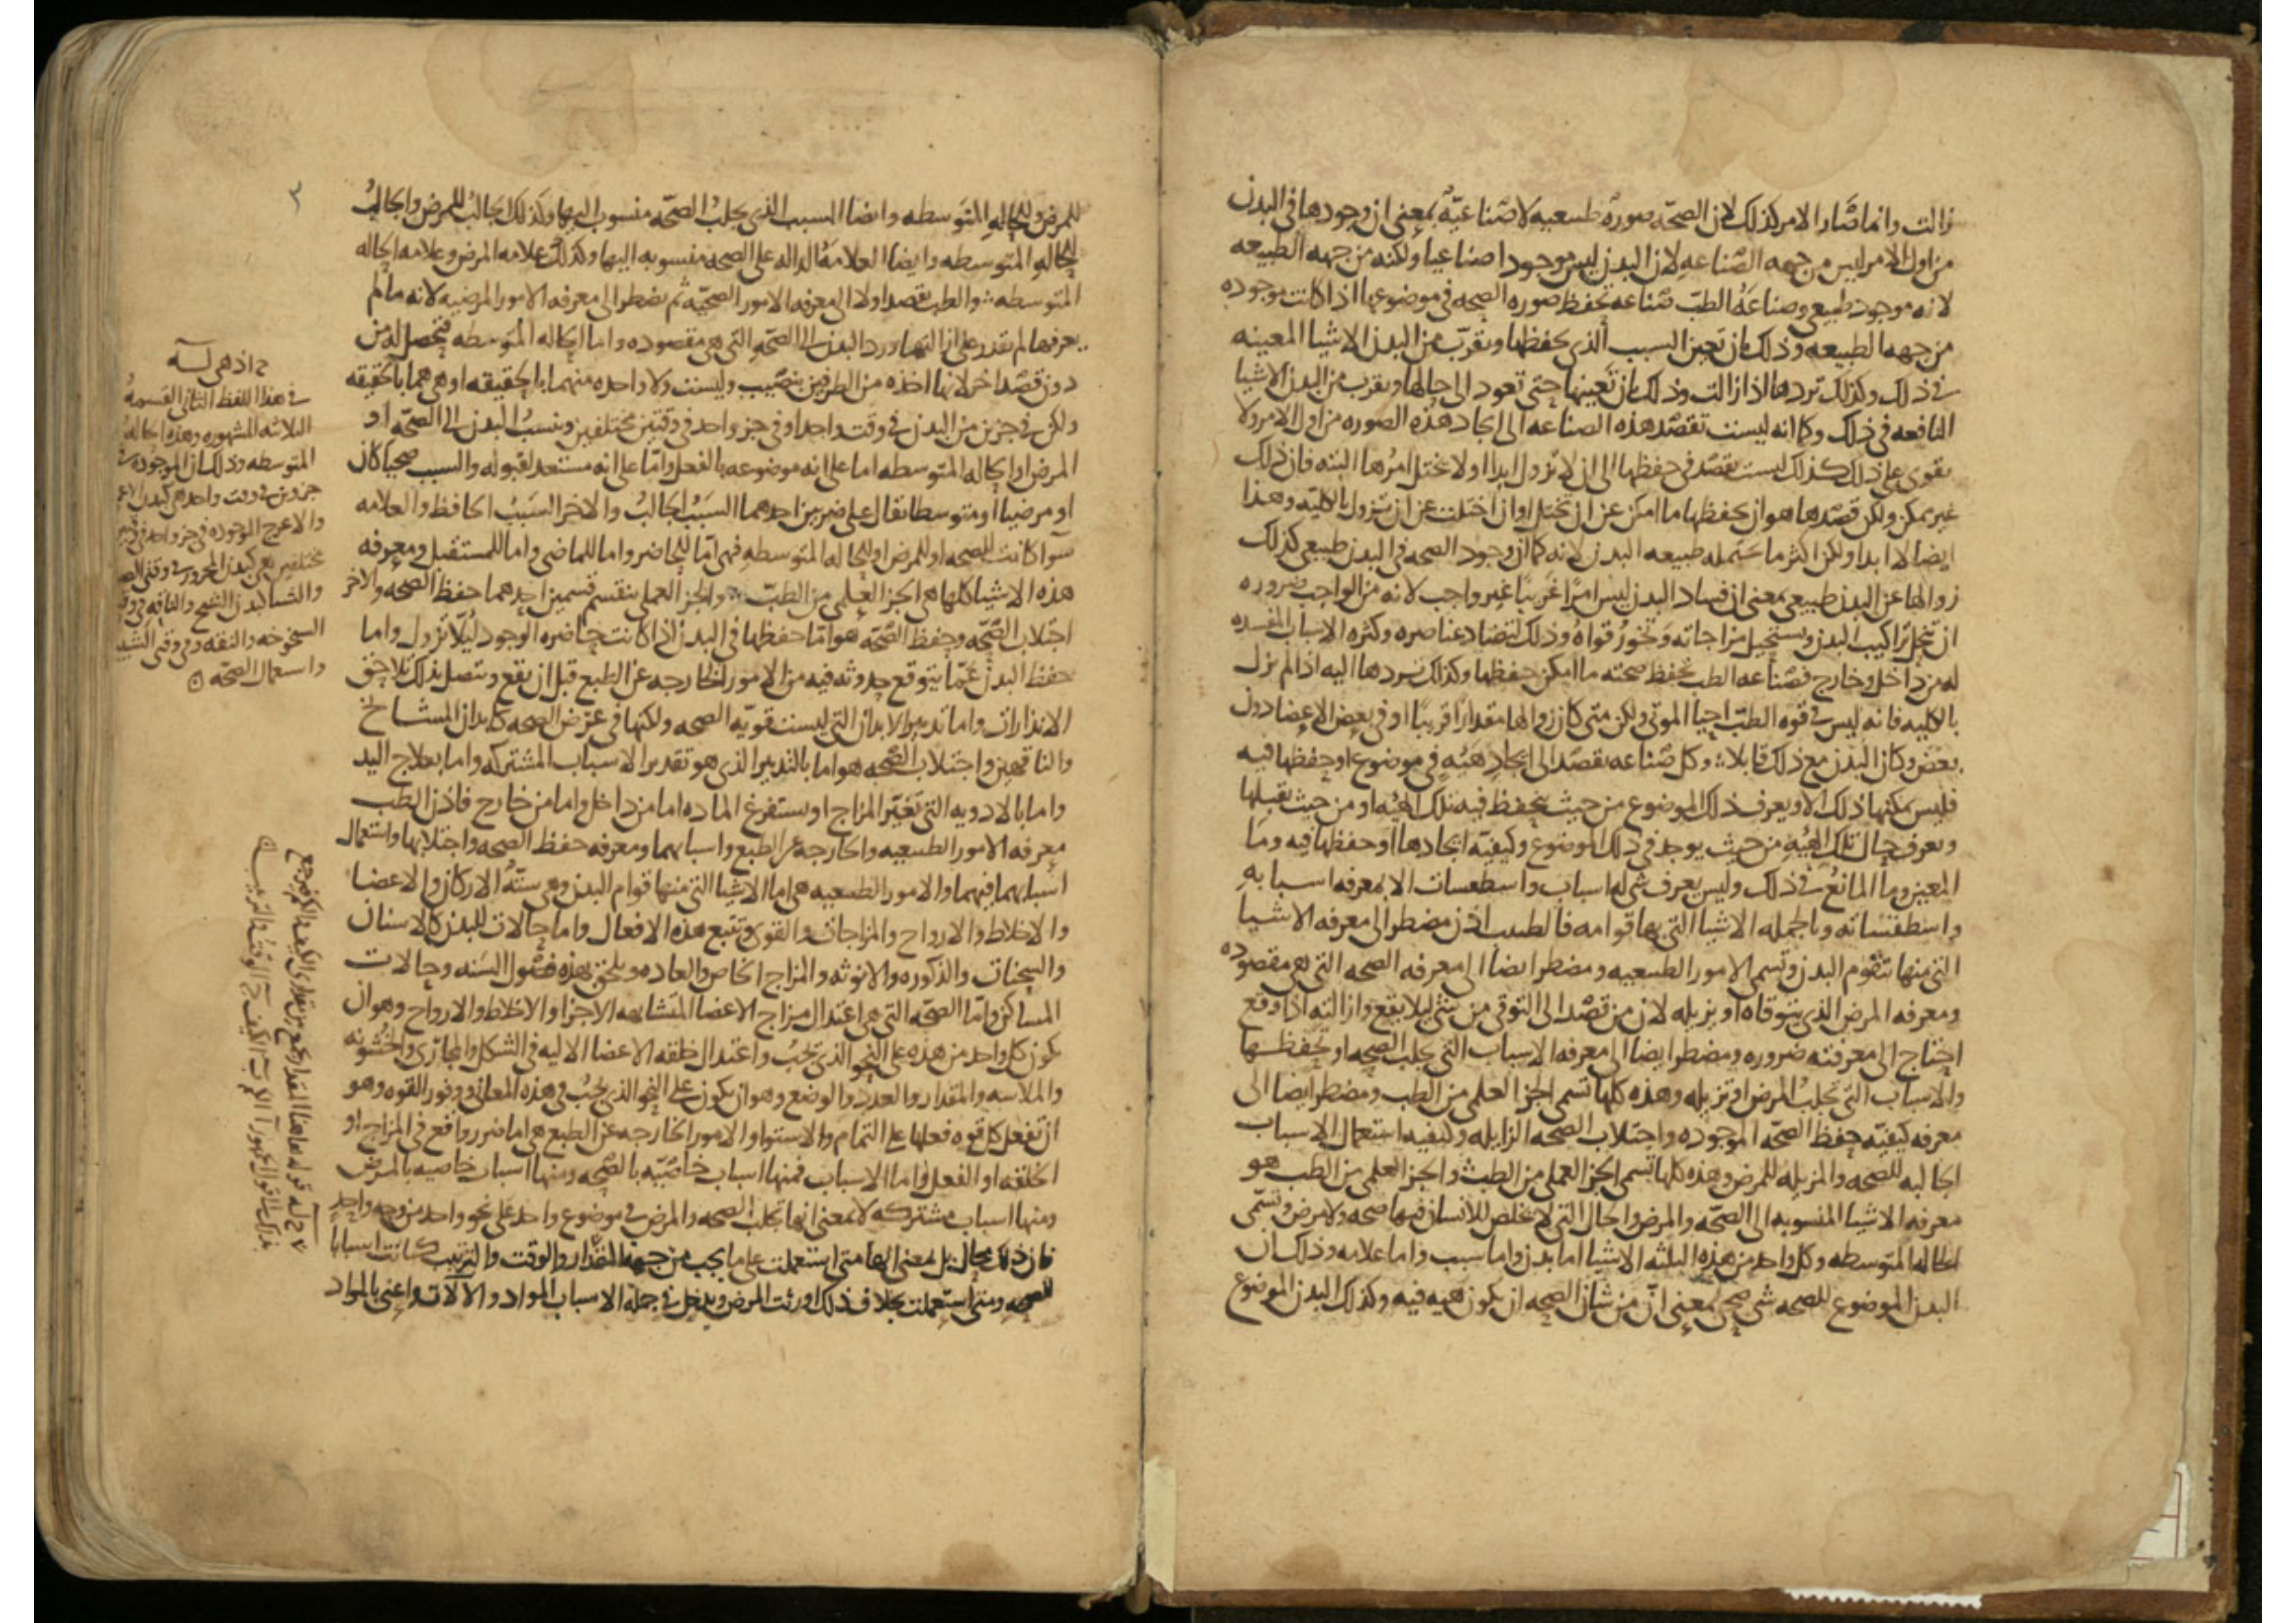 زالت وانما صار الامر كذلك لان الصحّه صورة طبيعيه لا صناعيّة بمعنى ان وجودها فى البدن
من اول الامر ليس من جهه الصّناعه لان البدن ليس موجودا صناعيا ولكنه من جهه الطبيعه
لانه موجود طبيعى وصناعةُ الطبّ صناعه تحفظ صوره الصحه فى موضوعها اذا كانت موجوده
من جهه الطبيعه وذلك بان تعين السبب الذى يحفظها وتقرّب من البدن الاشيا المعينه
فى ذلك وكذلك تردها اذا زالت وذلك بان تعينها حتى تعود الى حالها وتقرب من البدن الاشيا
النافعه فى ذلك وكما انه ليست تقصد هذه الصناعه الى ايجاد هذه الصوره من اول الامر ولا
تقوى على ذلك كذلك ليست تقصد فى حفظها الى ان لا تزول ابدا ولا تختل امرُها البته فان ذلك
غير ممكن ولكن قصدها هو ان تحفظها ما امكن عن ان تختل او ان اختلت عن ان تزول بالكليّه وهذا
ايضا لا ابدا ولكن اكثر ما تحتمله طبيعه البدن لانه كما ان وجود الصحه فى البدن طبيعى كذلك
زوالها عن البدن طبيعى بمعنى ان فساد البدن ليس امرًا غريبًا غير واجب لانه من الواجب ضروره
ان تنحل تراكيب البدن ويستحيل مزاجاته وتخورُ قواهُ وذلك لتضاد عناصره وكثره الاسباب المفسده
له من داخل وخارج فصناعه الطب تحفظ صحته ما امكن حفظها وكذلك تردها اليه اذا لم تزل
بالكليه فانه ليس فى قوه الطبّ احيا الموتى ولكن متى كان زوالها مقدارًا قريبًا او فى بعض الاعضا دون
بعض وكان البدن مع ذلك قابلا وكل صناعه تقصد الى ايجاد هيئةٍ فى موضوع او حفظها فيه
فليس يمكنها ذلك الا ويعرف ذلك الموضوع من حيث ينحفظ فيه تلك الهيُه او من حيث تقبلها
ويعرف حال تلك الهيُه من حيث يوجد فى ذلك الموضوع وكيفيّه ايجادها او حفظها فيه وما
المعين وما المانعُ فى ذلك وليس يعرف شى له اسباب واسطقسات الا بمعرفه اسبابه
واسطقساته وبالجمله الاشيا التى بها قوامه فالطبيب اذن مضطر الى معرفه الاشيا
التى منها تتقوم البدن وتسمى الامور الطبيعيه ومضطر ايضا الى معرفه الصحه التى هى مقصوده
ومعرفه المرض الذى يتوقاه او يزيله لان من قصد الى التوقى من شى ليلا يقع وازالته اذا وقع
احتاج الى معرفته ضروره ومضطر ايضا الى معرفه الاسباب التى تجلب الصحه او تحفظها
والاسباب التى تجلبُ المرض او تزيله وهذه كلها تسمى الجز العلمى من الطب ومضطر ايضا الى
معرفه كيفيّه حفظ الصحّه الموجوده واجتلاب الصحه الزايله وكيفيه استعمال الاسباب
الجالبه للصحه والمزيله للمرض وهذه كلها تسمى الجز العملى من الطب والجز العلمى من الطب هو
معرفه الاشيا المنسوبه الى الصحّه والمرض والحال التى لا تخلص للانسان فيها صحه ولا مرض وتسمّى
الحاله المتوسطه وكل واحد من هذه الثلثه الاشيا اما بدن واما سبب واما علامه وذلك ان
البدن الموضوع للصحه شى صحى بمعنى انّ من شان الصحه ان يكون هيه فيه وكذلك البدن الموضوع
٣
للمرض وللحاله المتوسطه وايضا السبب الذى يجلبُ الصحّه منسوب اليها وكذلك الجالبُ للمرض والجالبُ
للحاله المتوسطه وايضا العلامةُ الداله على الصحه منسوبه اليها وكذلك علامه المرض وعلامه الحاله
المتوسطه والطب يقصد اولا الى معرفه الامور الصحيّه ثم يضطر الى معرفه الامور المرضيه لانه ما لم
يعرفها لم يقدر على ازالتها ورد البدن الى الصحّه التى هى مقصوده واما الحاله المتوسطه فتحصل له من
دون قصد اخر لانها اخذه من الطرفين بنصيب وليست ولا واحده منهما بالحقيقه او هى هما بالحقيقه
ولكن فى جزين من البدن فى وقت واحد او فى جز واحد فى وقتين مختلفين وينسبُ البدن الى الصحّه او
المرض او الحاله المتوسطه اما على انه موضوعه بالفعل وامّا على انه مستعد لقبوله والسبب صحيا كان
او مرضيا او متوسطا يقال على ضربين احدهما السَبَبُ الجالبُ والاخر السَبَبُ الحافظ والعلامه
سوا كانت للصحه او للمرض او للحاله المتوسطه فهى امّا للحاضر واما للماضى واما للمستقبل ومعرفه
هذه الاشيا كلها هى الجز العلمى من الطبّ والجز العملى ينقسم قسمين احدهما حفظ الصحه والاخر
اجتلاب الصّحّه وحفظ الصّحّه هو امّا حفظها فى البدن اذا كانت حاضره الوجود ليُلّا تزول واما
حفظ البدن عمّا يتوقع حدوثه فيه من الامور الخارجه عن الطبع قبل ان يقع ويتصل بذلك تلاحق
الانذارات واما تدبير الابدان التى ليست قويّه الصحه ولكنها فى عرض الصحه كابدان المشايخ
والناقهين واجتلاب الصّحّه هو اما بالتدبير الذى هو تقدير الاسباب المشتركه واما بعلاج اليد
واما بالادويه التى تُغيّر المزاج او يستفرغ الماده اما من داخل واما من خارج فاذن الطب
معرفه الامور الطبيعيه والخارجه عن الطبع واسبابهما ومعرفه حفظ الصحه واجتلابها واستعمال
اسبابهما فيهما والامور الطبيعيه هى اما الاشيا التى منها قوام البدن وهى ستّةُ الاركان والاعضا
والاخلاط والارواح والمزاجات والقوى وتتبع هذه الافعال واما حالات للبدن كالاسنان
والسحنات والذكوره والانوثه والمزاج الخاص والعاده ويلحق بهذه فصول السنه وحالات
المساكن وامّا الصحّه التى هى اعتدال مزاج الاعضا المتشابهه الاجزا والاخلاط والارواح وهو ان
يكون كل واحد من هذه على النحو الذى يجبُ واعتدال خلقه الاعضا الاليه فى الشكل والمجارى والخشونه
والملاسه والمقدار والعدد والوضع وهو ان يكون على النحو الذى يجبُ فى هذه المعانى ووفور القوه وهو
ان تفعل كل قوه فعلها على التمام والاستوا والامور الخارجه عن الطبع هى اما ضرر واقع فى المزاج او
الخلقه او الفعل واما الاسباب فمنها اسباب خاصّيّه بالصحّه ومنها اسباب خاصيه بالمرض
ومنها اسباب مشتركه لا بمعنى انها تجلب الصحه والمرض فى موضوع واحد على نحو واحد من وجه واحد
فان ذلك محال بل بمعنى انها متى استعملت على ما يجب من جهه المقدار والوقت والترتيب كانت اسبابا
للصحه ومتى استعملت بخلاف ذلك اورثت المرض ويدخل فى جمله الاسباب المواد والالات واعنى بالمواد
فى هذا اللفظ الثانى القسمه
الثلاثه المشهوره وهذه الحاله
المتوسطه وذلك ان الموجوده فى
جزوين فى وقت واحد هى كبدن
والاعرج الموجوده فى جز واحد فى
مختلفين هى كبدن المحرور فى وقتى
والشتا كبدن الشيخ والناقه فى
الشيخوخه والنقه وفى وقتى
واستعمال الصحّه